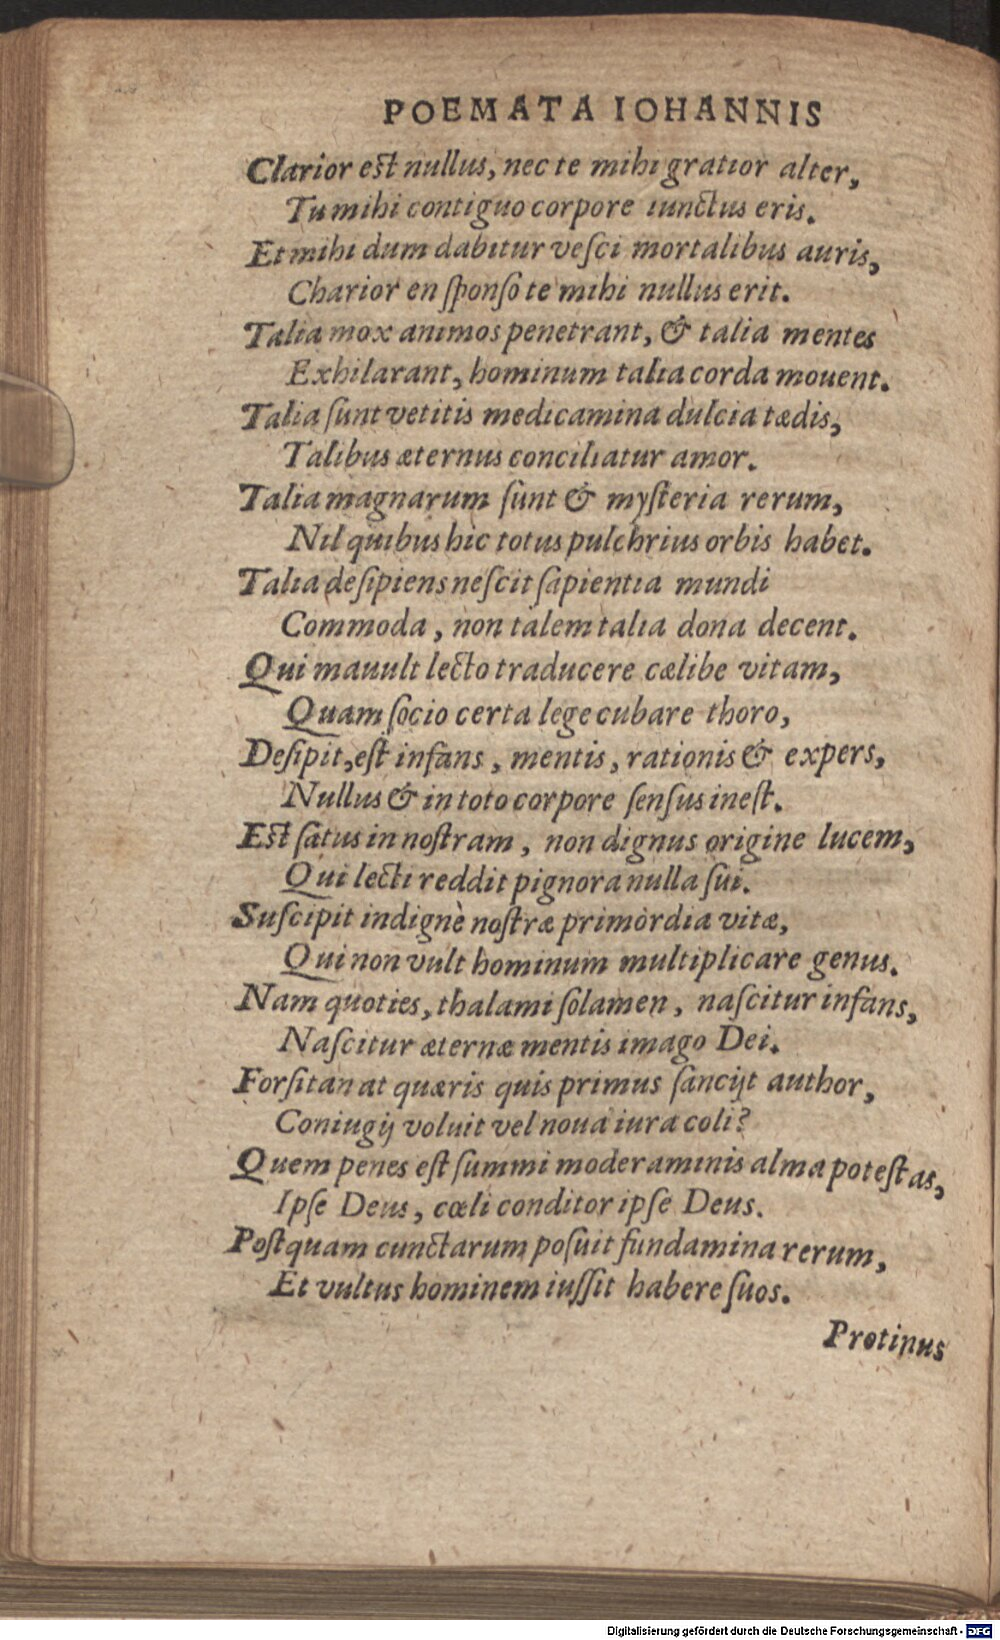 POEMATA IOHANNIS
Clarior est nullus, nec te mihi gratior alter,
Tu mihi contiguo corpore iunctus eris.
Et mihi dum dabitur vesci mortalibus auris,
Charior en sponso te mihi nullus erit.
Talia mox animos penetrant, & talia mentes
Exhilarant, hominum talia corda mouent.
Talia sunt vetitis medicamina dulcia tædis,
Talibus æternus conciliatur amor.
Talia magnarum sunt & mysteria rerum,
Nil quibus hic totus pulchrius orbis habet.
Talia desipiens nescit sapientia mundi
Commoda, non talem talia dona decent.
Qui mauult lecto traducere cælibe vitam,
Quam socio certa lege cubare thoro,
Desipit, est infans, mentis, rationis & expers,
Nullus & in toto corpore sensus inest.
Est satus in nostram, non dignus origine lucem,
Qui lecti reddit pignora nulla sui.
Suscipit indignè nostræ primordia vitæ,
Qui non vult hominum multiplicare genus.
Nam quoties, thalami solamen, nascitur infans,
Nascitur æternæ mentis imago Dei.
Forsitan at quæris quis primus sancijt author,
Coniugij voluit vel noua iura coli?
Quem penes est summi moderaminis alma potestas,
Ipse Deus, cœli conditor ipse Deus.
Postquam cunctarum posuit fundamina rerum,
Et vultus hominem iussit habere suos.
Protinus
Digitalisierung gefördert durch die Deutsche Forschungsgemeinschaft - DFG